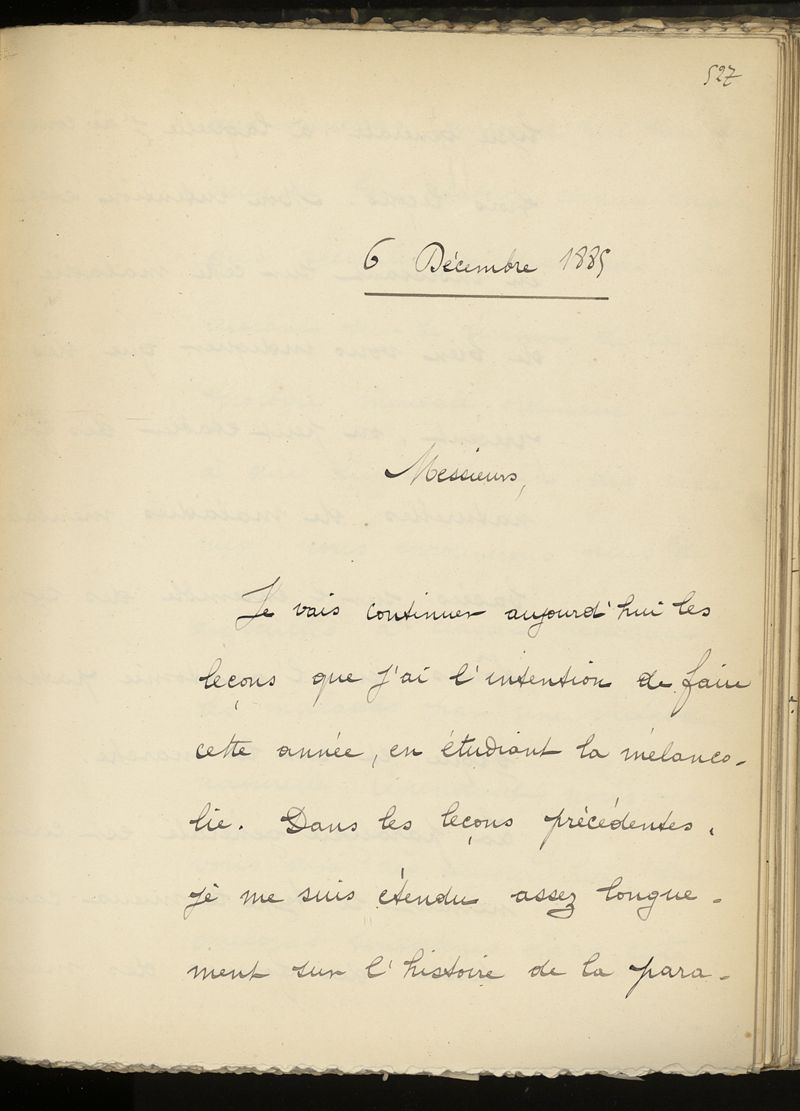 527
6 Décembre 1885
Messieurs,
Je vais continuer aujourd'hui les
leçons que j'ai l'intention de faire
cette année, en étudiant la mélanco-
lie. Dans les leçons précédentes,
je me suis étendu assez longue-
ment sur l'histoire de la para-